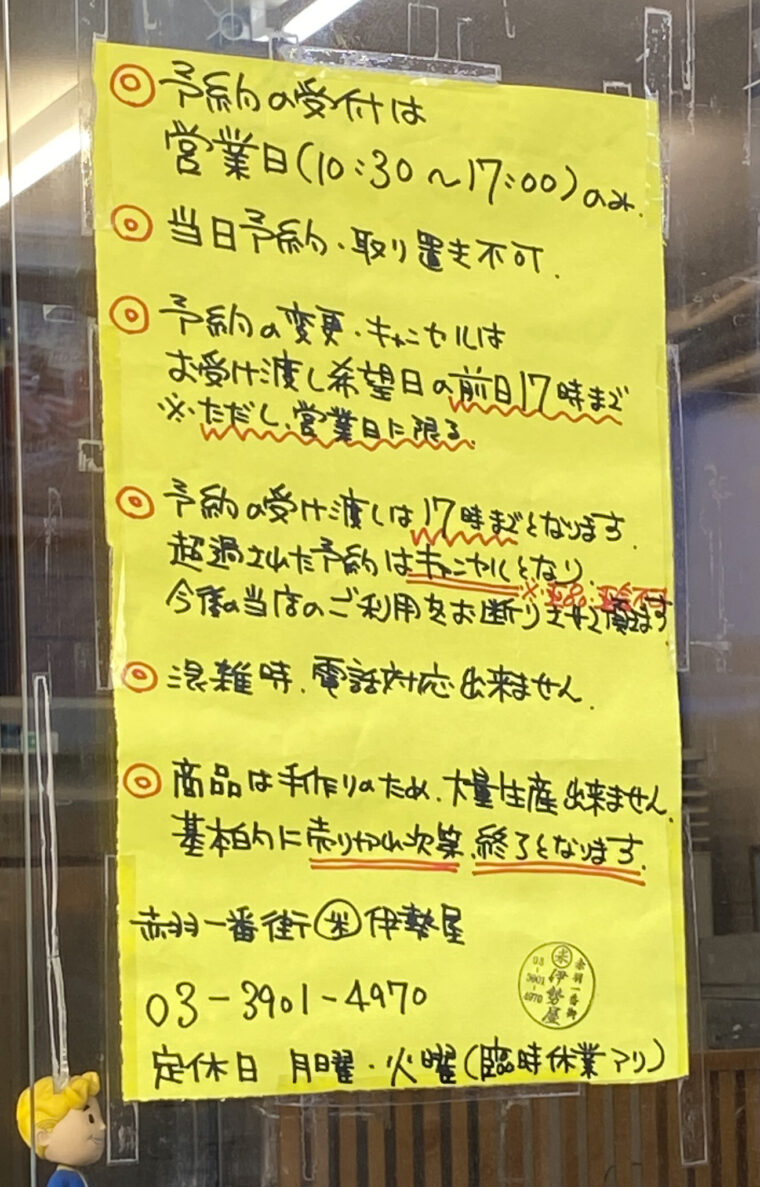 ◎予約の受付は
営業日(10:30〜17:00)のみ.
◎当日予約・取り置き不可.
◎予約の変更・キャンセルは
お受け渡し希望日の前日17時まで
※ただし、営業日に限る.
◎予約の受け渡しは17時までとなります.
超過された予約はキャンセルとなり.
※返品・返金不可
今後の当店のご利用をお断りさせて頂きます
◎混雑時、電話対応出来ません.
◎商品は手作りのため、大量生産出来ません.
基本的に売りきれ次第、終了となります.
赤羽一番街 米 伊勢屋
03-3901-4970
定休日 月曜・火曜(臨時休業アリ)
赤羽一番街
米
伊勢屋
03-3901-4970